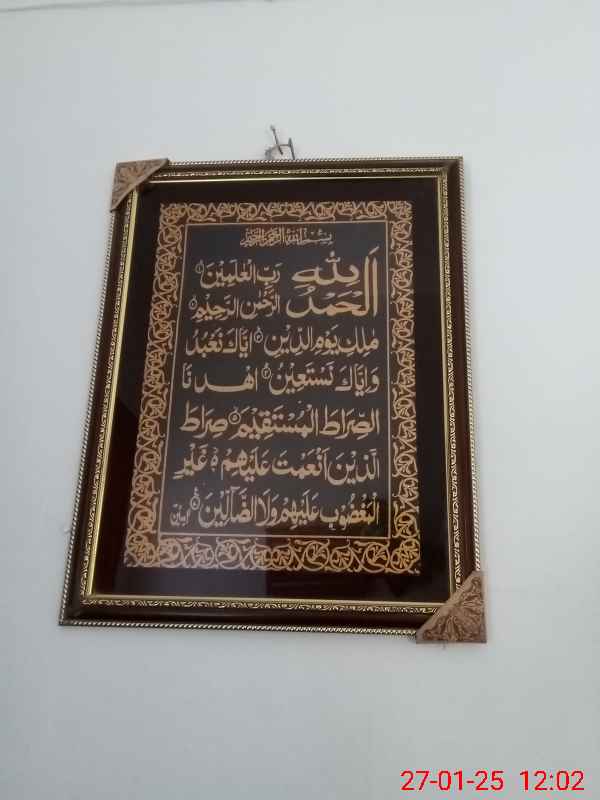 بسم الله الرحمن الرحيم
اَلْحَمْدُ لِلّٰهِ رَبِّ الْعٰلَمِيْنَ ۱
الرَّحْمٰنِ الرَّحِيْمِ ۲
مٰلِكِ يَوْمِ الدِّيْنِ ۳ اِيَّاكَ نَعْبُدُ
وَاِيَّاكَ نَسْتَعِيْنُ ۴ اهْدِنَا
الصِّرَاطَ الْمُسْتَقِيْمَ ۵ صِرَاطَ
الَّذِيْنَ اَنْعَمْتَ عَلَيْهِمْ ۶ غَيْرِ
الْمَغْضُوْبِ عَلَيْهِمْ وَلَا الضَّآلِّيْنَ ۷ اٰمين
27-01-25 12:02